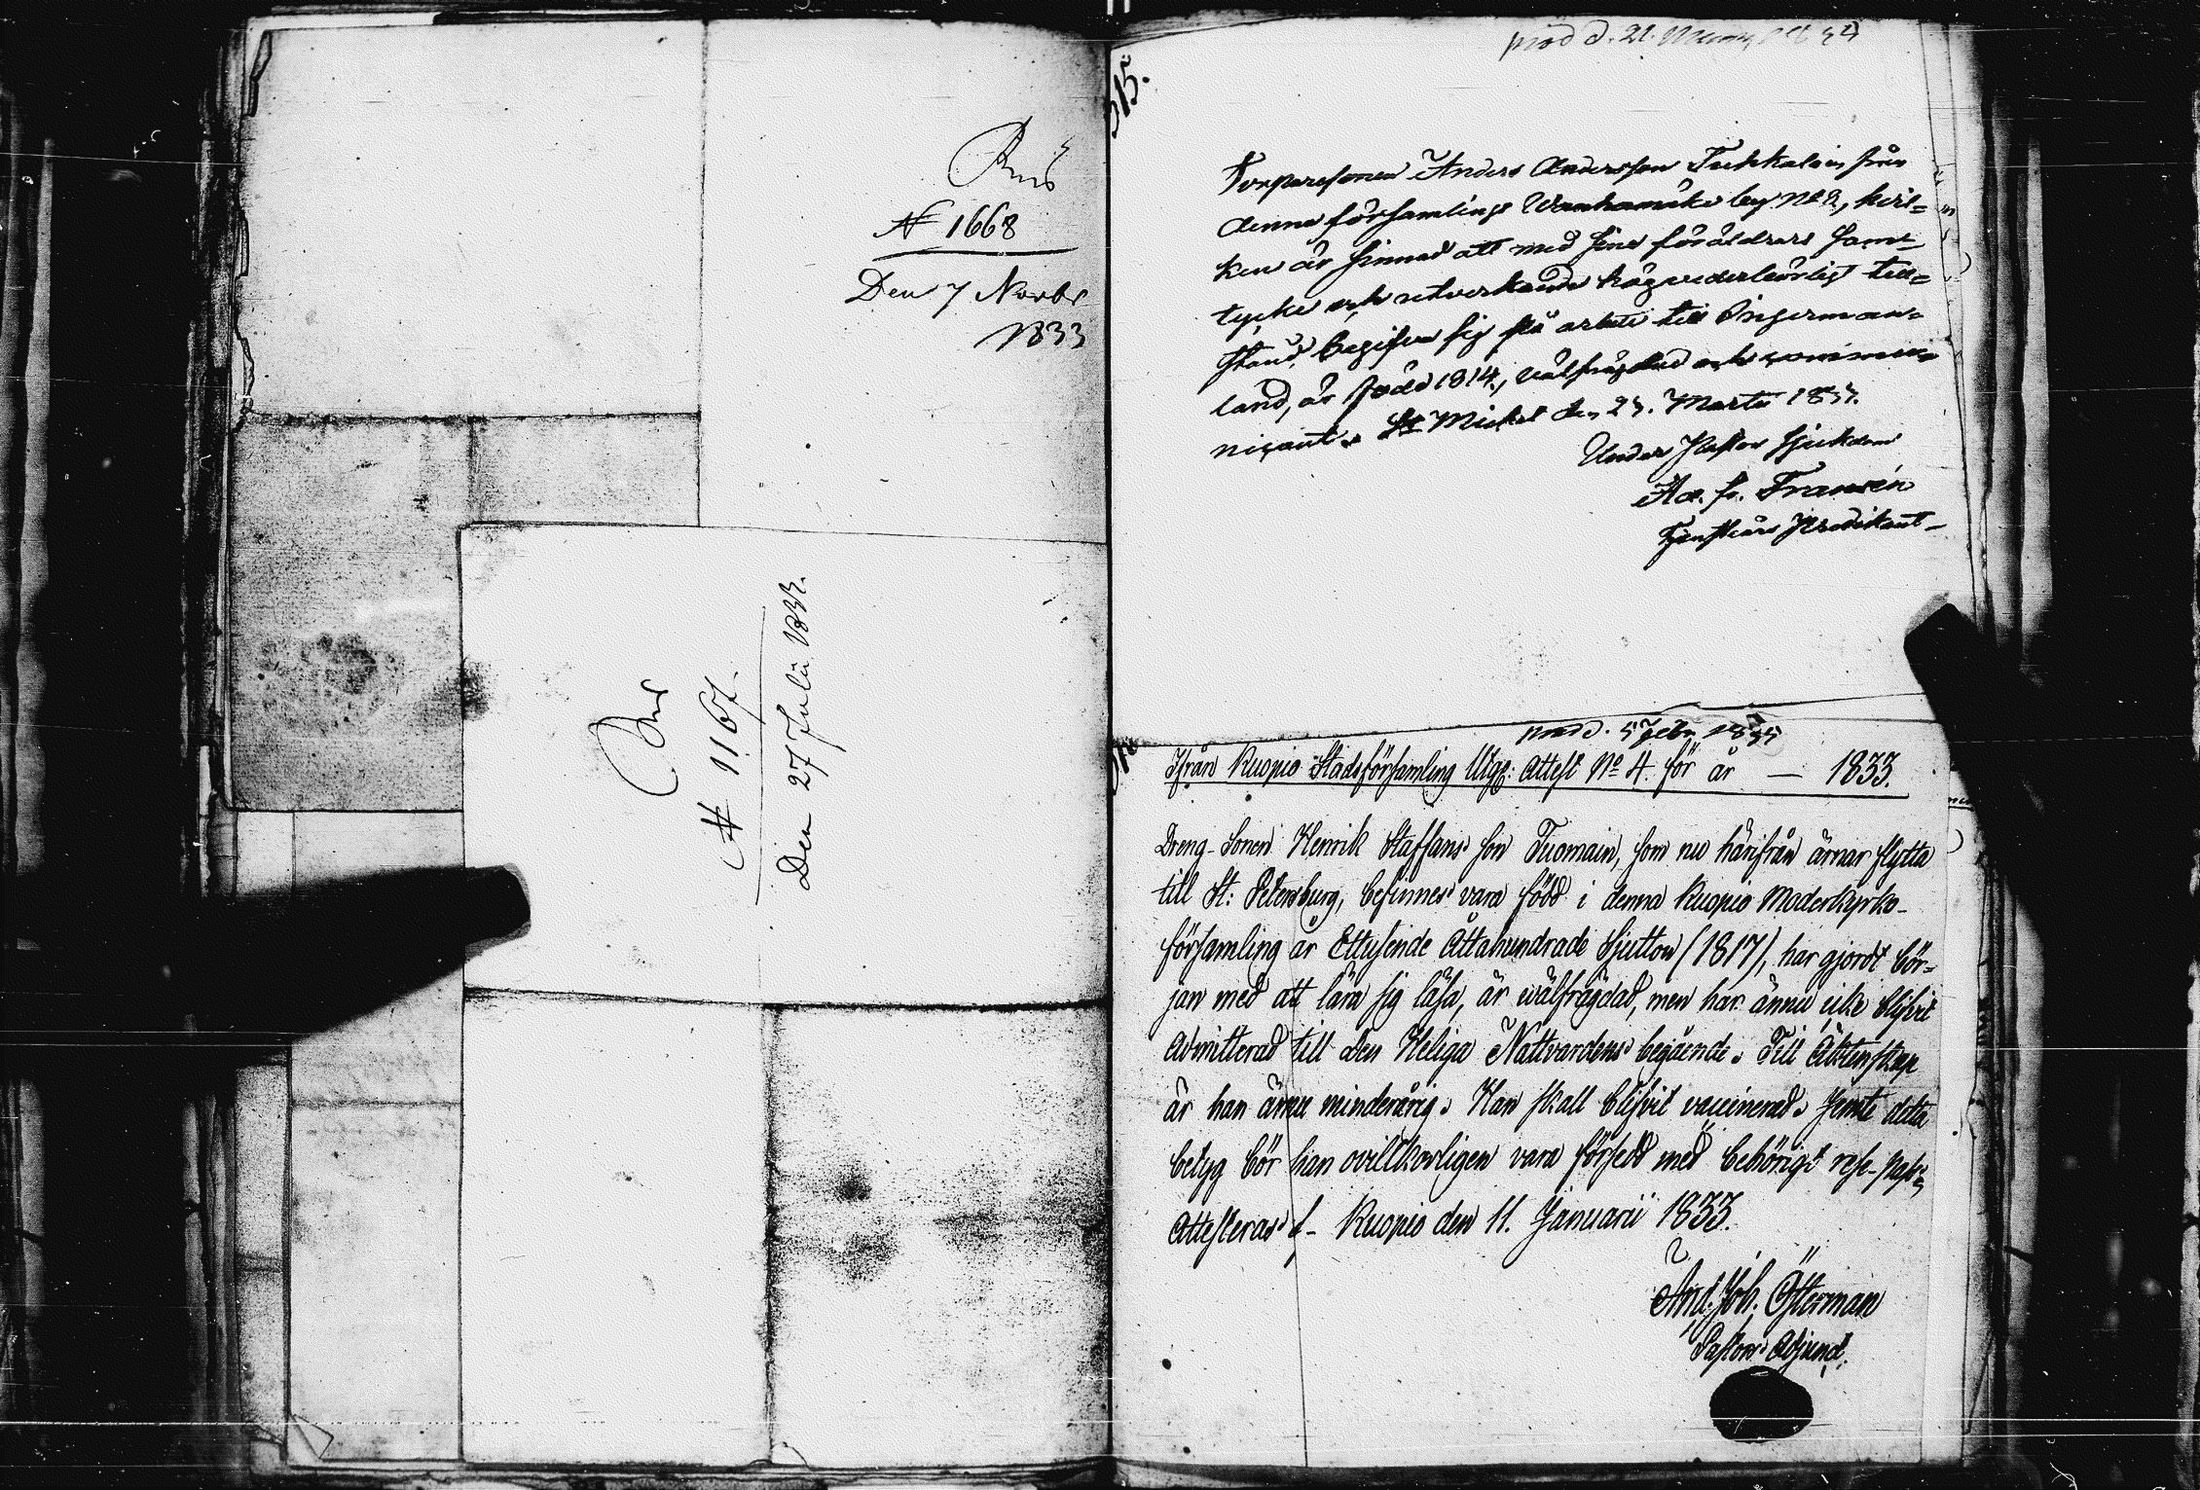 № 1668
Den 7 Novbr
1833
№ 1167.
Den 27 Julii 1833.
515.
prod d. 21.
Torparesonen Anders Andersson Tuhkalain från
denna församlings Wanhamäki by № 2, hvil=
ken är sinnad att med sine föräldrars sam=
tycke och utverkande högvederbörligt till=
stånd, begifva sig på arbete till Ingerman=
land, är född 1814, välfrägdad och commu=
nicant. St Michel den 23. Martii 1833.
Under Pastors sjukdom
Ad. Fr. Fransén
Tjenstgörs Predikant
prod d. 5 Febr 1835
Ifrån Kuopio Stadsförsamling Utgg: Attest № 4. för år — 1833.
Dreng-Sonen Henrik Staffans son Tuomain, som nu härifrån ärnar flytta
till St: Petersburg, befinnes vara född i denna Kuopio Moderkyrko-
församling år Ettusende Åttahundrade Sjutton (1817), har gjordt bör=
jan med att lära sig läsa, är wälfrägdad, men har ännu icke blifvit
admitterad till Den Heliga Nattvardens begående. Till Äktenskap
är han ännu minderårig. Han skall blifvit vaccinerad. Jemte detta
betyg bör han ovillkorligen vara försedd med behörigt rese-pass;
Attesteras f- Kuopio den 11. Januarii 1833.
And. Joh. Österman
Pastors Adjunct.